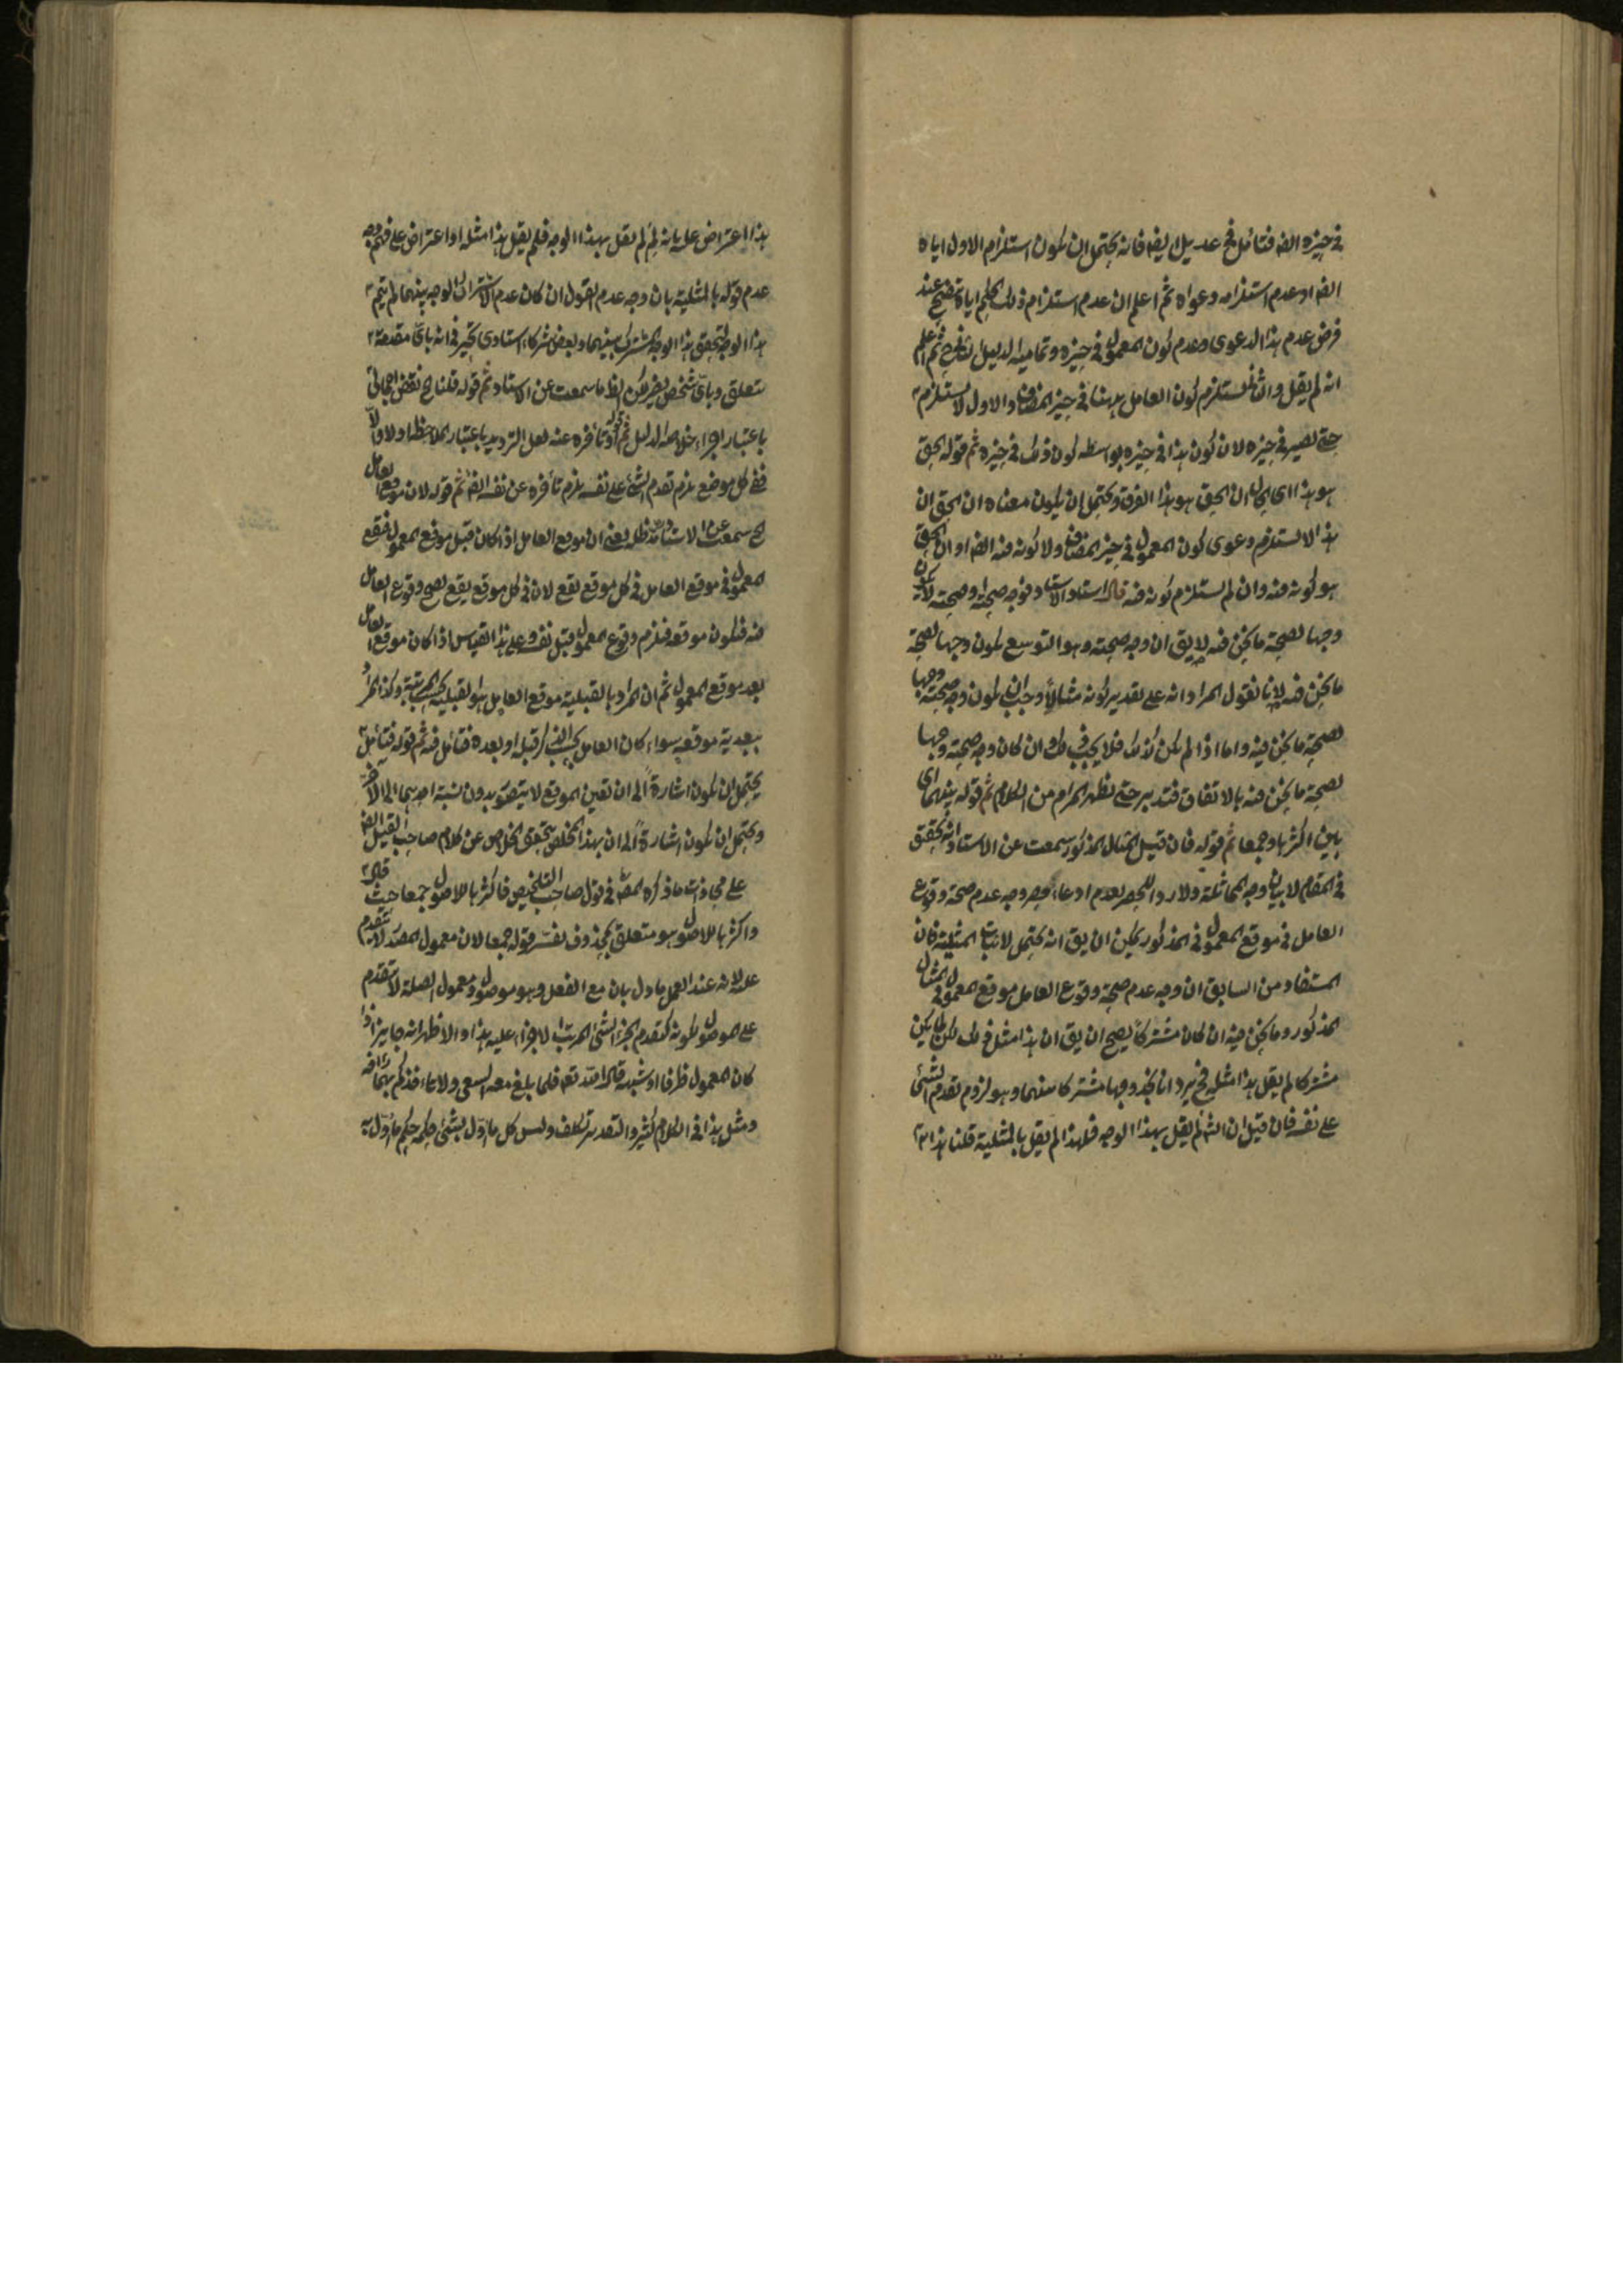 في حيزه ايضا فتأمل في عديل ايضا فانه يحتمل ان يكون استلزام الاول اياه
ايضا او عدم استلزامه دعواه ثم اعلم ان عدم استلزام ذلك الحكم اياه عند
فرض عدم هذا الدعوى وعدم كون المعمول في حيزه وتمامية الدليل ثم اعلم
انه لم يقل والثاني مستلزم كون العامل ههنا في حيز المضاف والاول لا يستلزم
حتى يصير في حيزه لان كون هذا في حيزه بواسطة كون ذلك في حيزه ثم قوله الحق
هو هذا اي ان الحق هو هذا الفرق ويحتمل ان يكون معناه ان الحق ان
هذا لا يستلزم دعوى كون المعمول في حيز المضاف ولا كونه فيه ايضا او ان الحق
هو كونه فيه وان لم يستلزم كونه فيه قال استاد الاستاد فوجه صحته وصحته لا يكون
وجها لصحة ما نحن فيه لا يق ان وجه صحته وهو التوسع يكون وجها لصحة
ما نحن فيه لانا نقول المراد انه على تقدير كونه مثالا وجب ان يكون وجه صحته وجها
لصحة ما نحن فيه واما اذا لم يكن كذلك فلا يجب ذلك وان كان وجه صحته وجها
لصحة ما نحن فيه بالاتفاق فتدبر حتى يظهر المرام من الكلام ثم قوله بينهما اي
بين اكثرها وجمعا ثم قوله فان قيل المثال المذكور سمعت عن الاستاد انه تحقيق
في المقام لا بيان وجه المماثلة ولا رد الحصر لعدم ادعاء حصر وجه عدم صحة وقوع
العامل في موقع المعمول في المذكور يمكن ان يق انه يحتمل لاثبات المثلية فان
المستفاد من السابق ان وجه عدم صحة وقوع العامل موقع المعمول في المثال
المذكور وما نحن فيه ان كان مشتركا يصح ان يق ان هذا مثل ذلك لكن لما لم يكن
مشتركا لم يقل هذا مثله فح يرد انا نجد وجها مشتركا بينهما وهو لزوم تقدم الشئ
على نفسه فان قيل ان الش لم يقل بهذا الوجه فلهذا لم يقل بالمثلية قلنا هذا
هذا اعتراض عليه بانه لم لم يقل بهذا الوجه فلم يقل هذا مثله او اعتراض على وجه
عدم قوله بالمثلية بان وجه عدم القول ان كان عدم الاشتراك الوجه بينهما لم يتم
هذا الوجه لتحقق هذا الوجه المشترك بينهما وبعض شركاء استادى تحير في انه باي مقدمة
يتعلق وباي شخص يضر لكن ايضا ما سمعت عن الاستاد ثم قوله قلنا ح نقض اجمالي
باعتبار اجراء خلاصة الدليل ثم قوله وتأخره عنه لعل الترديد باعتبار الملاحظة اولا والا
ففي كل موضع يلزم تقدم الشئ على نفسه يلزم تأخره عن نفسه ايضا ثم قوله لان موقع العامل
الخ سمعت عن الاستاد مد ظله يعني ان موقع العامل اذا كان قبل موقع المعمول فيقع
المعمول في موقع العامل في كل موقع يقع لان في كل موقع يقع يصح وقوع العامل
فيه فيكون موقعه فيلزم وقوع المعمول قبل نفسه وعلى هذا القياس اذا كان موقع العامل
بعد موقع المعمول ثم ان المراد بالقبلية موقع العامل هو القبلية بحسب المرتبة وكذا المراد
ببعدية موقعه سواء كان العامل بحسب الذكر قبله او بعده فتأمل فيه ثم قوله فتأمل
يحتمل ان يكون اشارة الى ان تعين الموقع لا يتصور بدون نسبة احدهما الى الاخر
ويحتمل ان يكون اشارة الى ان بهذا المخلص يتحقق الخلاص عن كلام صاحب القيل ايضا
على محاذات ما ذكره المص في قول صاحب التلخيص فاكثرها للاصول جمعا حيث قال
واكثرها للاصول هو متعلق بمحذوف يفسره قوله جمعا لان معمول المصدر لا يتقدم
عليه لانه عند العمل ماول بان مع الفعل وهو موصول ومعمول الصلة لا يتقدم
على الموصول لكونه كتقدم الجزء الشئ المرتب الاجزاء عليه هذا والاظهر انه جايز اذا
كان المعمول ظرفا او شبهه قال الله تعه فلما بلغ معه السعى ولا تاخذكم بهما رافة
ومثل هذا في الكلام كثير والتقدير تكلف وليس كل ماول بشئ حكمه حكم ماول به